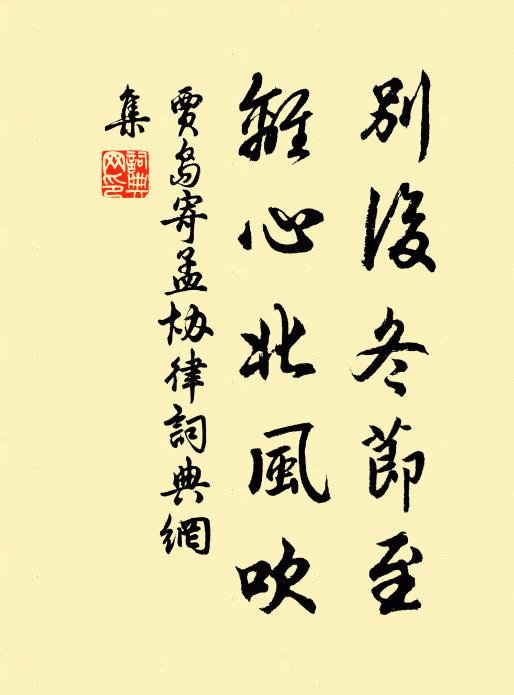 別後冬節至
離心北風吹
賈島寄孟協律詞典網
集
詞典
网印